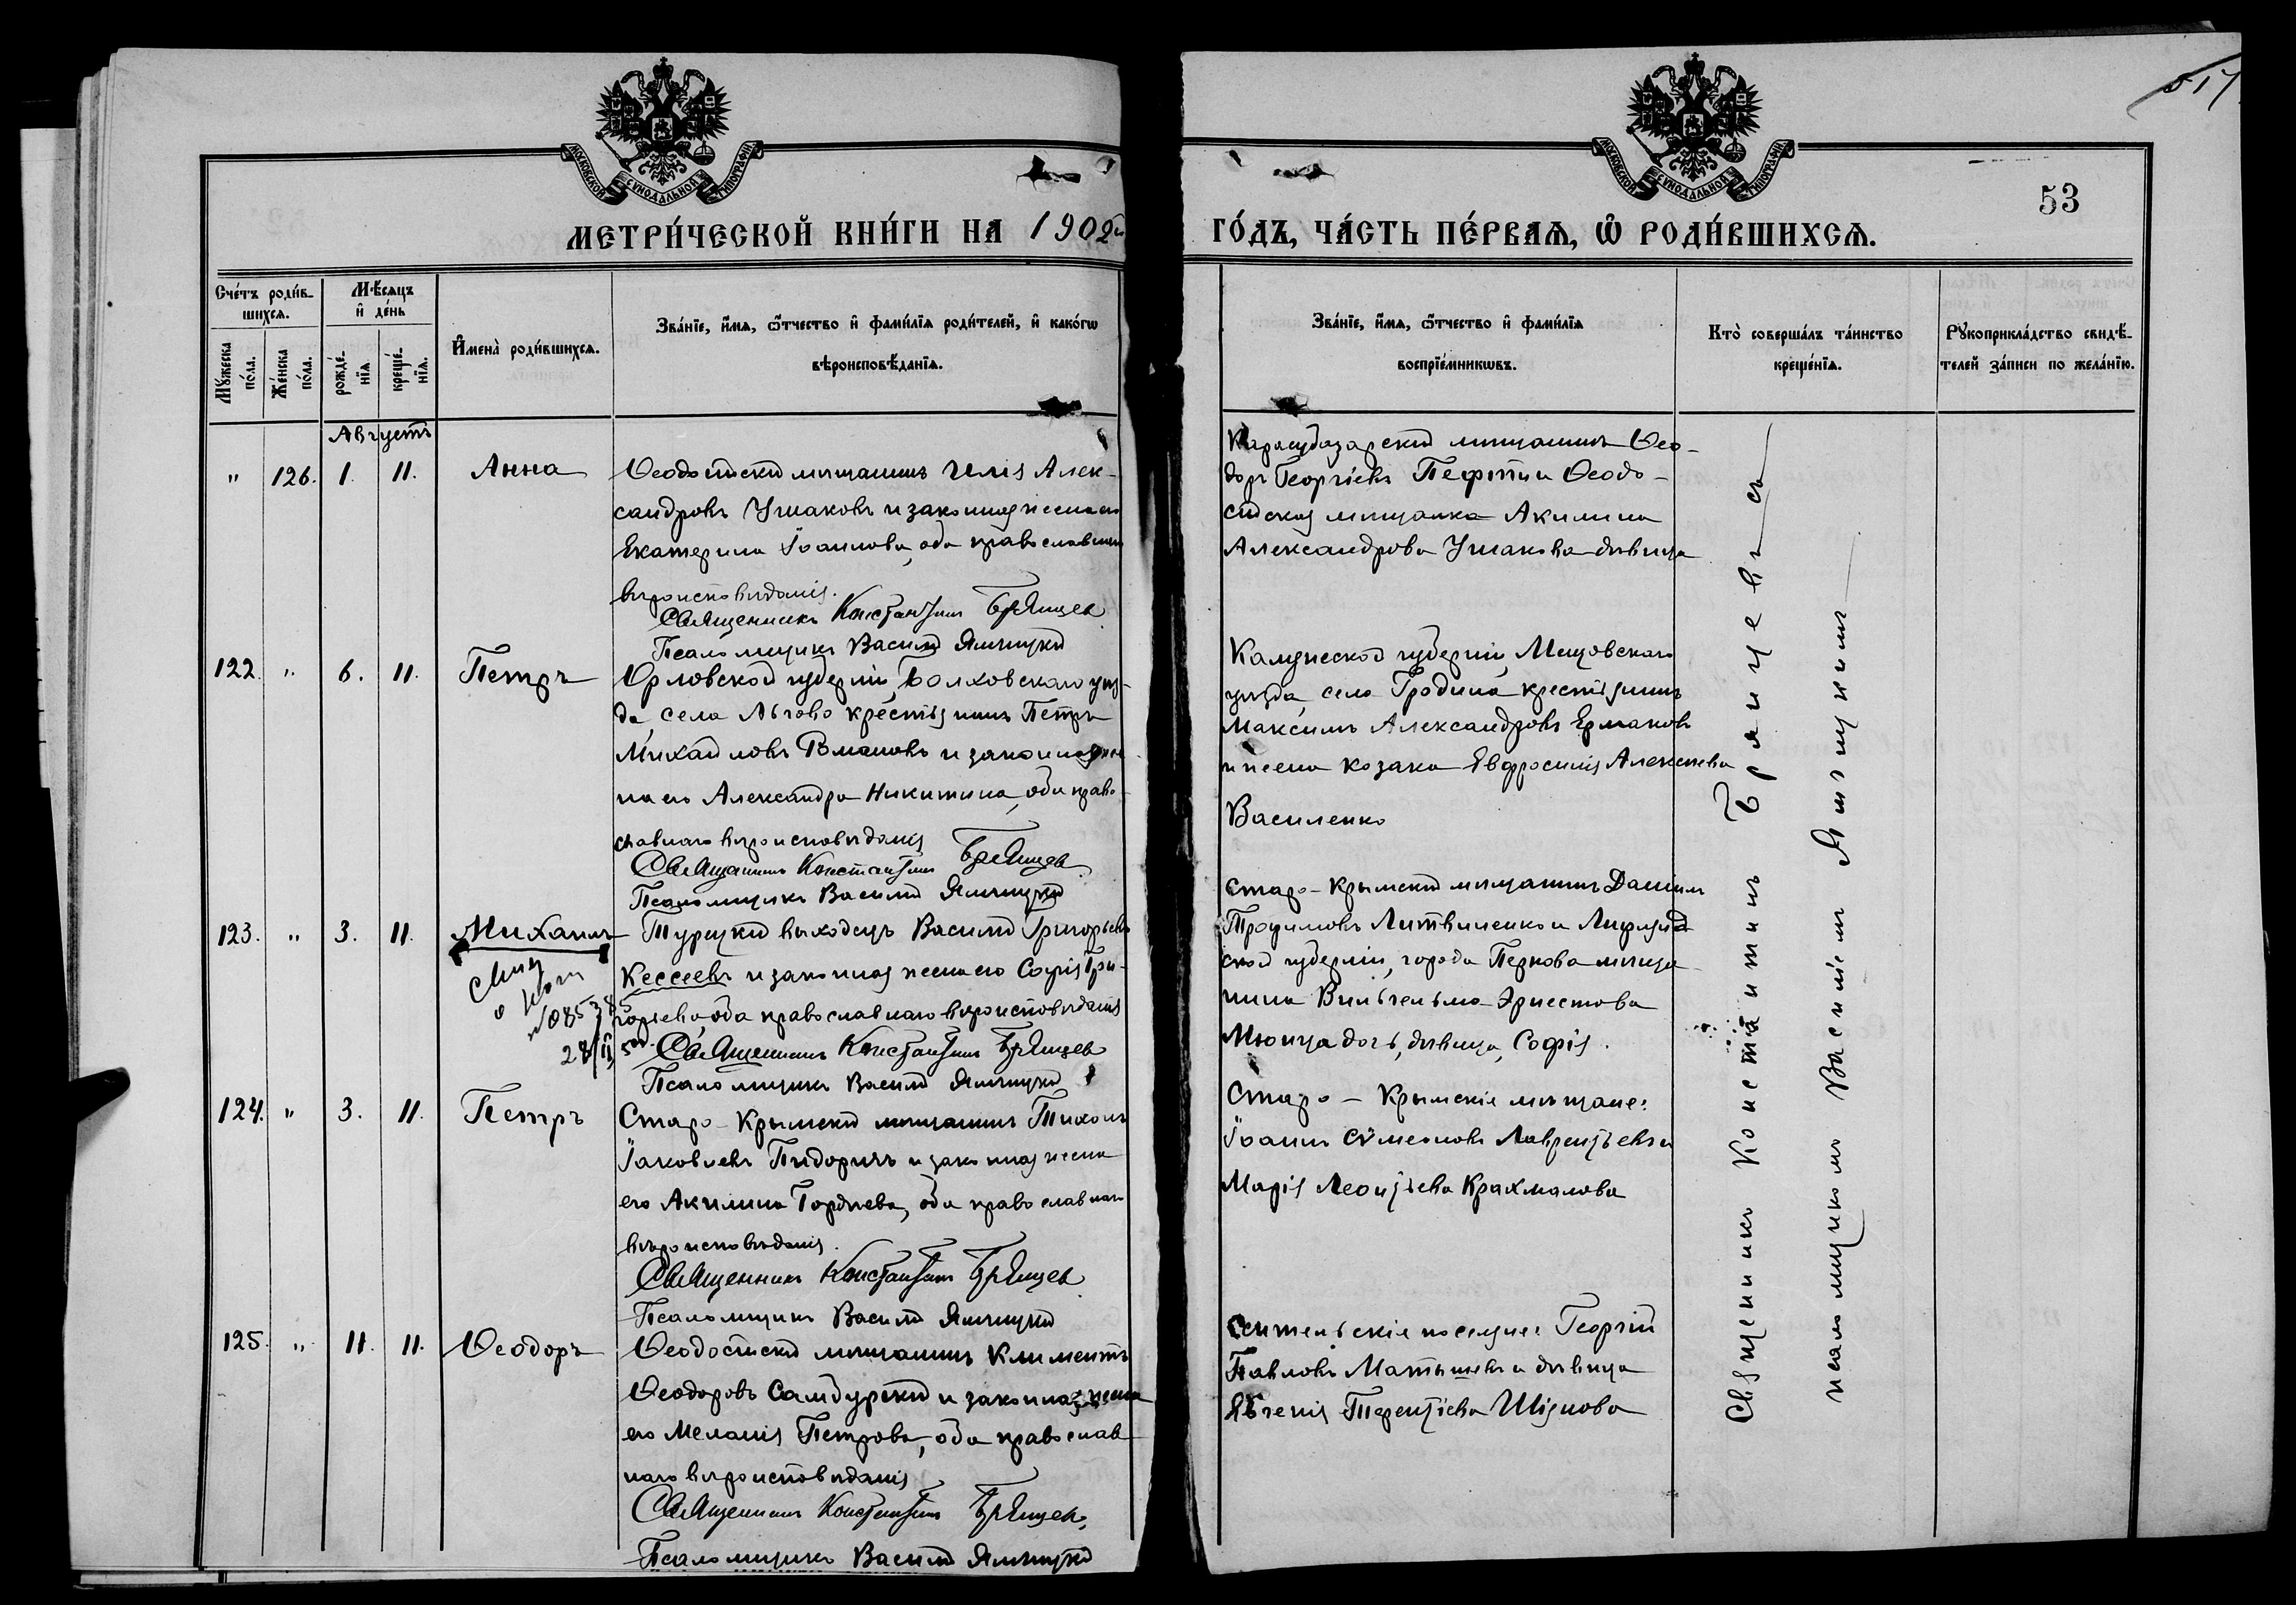 517
МОСКОВСКОЙ СѴНОДАЛЬНОЙ ТИПОГРАФІИ
МОСКОВСКОЙ СѴНОДАЛЬНОЙ ТИПОГРАФІИ
53
МЕТРИ́ЧЕСКОЙ КНИ́ГИ НА 1902й
ГО́ДЪ, ЧА́СТЬ ПЕ́РВАѦ, Ѡ РОДИ́ВШИХСѦ.
Сче́тъ роди́в-
шихсѧ.
Мѣ́сѧцъ
и҆ де́нь
Мꙋ́жеска
по́ла.
Же́нска
по́ла.
рожде́-
нїѧ
креще́-
нїѧ.
И҆мена̀ роди́вшихсѧ.
Зва́нїе, и҆́мѧ, ѻ҆́тчество и҆ фами́лїѧ роди́телей, и҆ како́гѡ
вѣроисповѣ́данїѧ.
Зва́нїе, и҆́мѧ, ѻ҆́тчество и҆ фами́лїѧ
воспрїе́мникѡвъ.
Кто̀ соверша́лъ та́инство
креще́нїѧ.
Рꙋкоприкла́дство свидѣ́-
телей за́писи по жела́нїю.
Августъ
" 126. 1. 11. Анна
Ѳеодосійскій мѣщанинъ Илія Алек-
сандровъ Ушаковъ и законная жена его
Екатерина Іоаннова, оба православнаго
вѣроисповѣданія.
Священникъ Константинъ Брянцев
Псаломщикъ Василій Ямчицкій
Карасубазарскій мѣщанинъ Ѳео-
доръ Георгіевъ и Ѳеодо-
сійская мѣщанка Акилина
Александрова Ушакова девица
122. " 6. 11. Петръ
Орловской губерніи, Болховскаго уѣз-
да села Льгово крестьянинъ Петръ
Михайловъ и законная же-
на его Александра Никитина, оба право-
славнаго вѣроисповѣданія
Священникъ Константинъ Брянцев
Псаломщикъ Василій Ямчицкій
Калужской губерніи, Мещовскаго
уѣзда, села Гродина крестьянинъ
Максимъ Александровъ Ермаковъ
и жена козака Евфросинія Алексѣева
Василенко
123. " 3. 11. Михаилъ
Турецкій выходецъ Василій Григорьевъ
Кессеевъ и законная жена его Софія Гри-
горьева, оба православнаго вѣроисповѣданія
Священникъ Константинъ Брянцев
Псаломщикъ Василій Ямчицкій
Старо-Крымскій мѣщанинъ Даніилъ
Трофимовъ Литвиненко и Лифлянд-
ской губерніи, города Пернова мѣща-
нина Вильгельма Эрнестова
Мюнца дочь, девица, Софія.
124. " 3. 11. Петръ
Старо-Крымскій мѣщанинъ Тихонъ
Іаковлевъ Пидоричъ и законная жена
его Акилина Гордѣева, оба православнаго
вѣроисповѣданія.
Священникъ Константинъ Брянцев
Псаломщикъ Василій Ямчицкій
Старо-Крымскіе мѣщане:
Іоаннъ Сѵмеоновъ Лаврентьевъ и
Марія Леонтьева Крахмалова
125. " 11. 11. Ѳеодоръ
Ѳеодосійскій мѣщанинъ Климентъ
Ѳеодоровъ Самбурскій и законная жена
его Меланія Петрова, оба православ-
наго вѣроисповѣданія
Священникъ Константинъ Брянцев
Псаломщикъ Василій Ямчицкій
поселяне: Георгій
Павловъ и девица
Евгенія Терентіева Шіянова
Священникъ Константинъ Брянцевъ съ
псаломщикомъ Василіемъ Ямчицкимъ